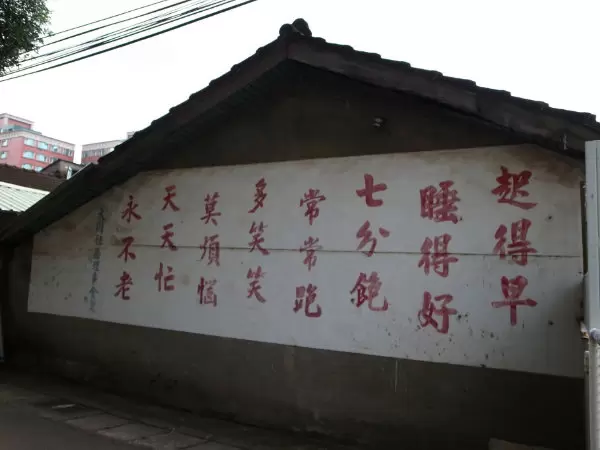 起得早
睡得好
七分飽
常常跑
多笑笑
莫煩惱
天天忙
永不老